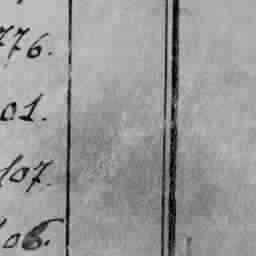 776.
01.
107.
106.